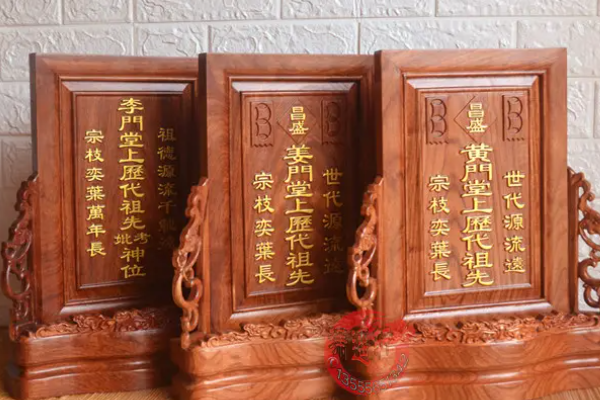 祖德源流千
李門堂上歷代祖先考妣神位
宗枝奕葉萬年長
世代源流遠
昌盛
姜門堂上歷代祖先
宗枝奕葉長
世代源流遠
昌盛
黃門堂上歷代祖先
宗枝奕葉長